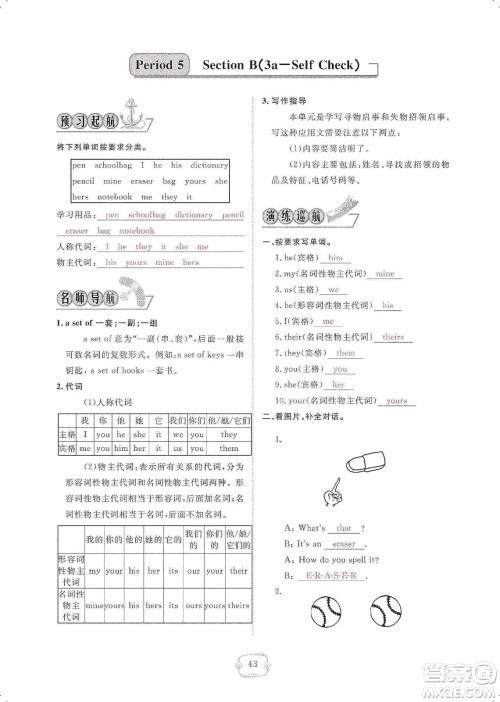 Period 5 Section B(3a—Self Check)
预习起航
将下列单词按要求分类。
pen schoolbag I he his dictionary
pencil mine eraser bag yours she
hers notebook me they it
学习用品: pen schoolbag dictionary pencil
eraser bag notebook
人称代词: I he they it she me
物主代词: his yours mine hers
名师导航
1. a set of 一套;一副;一组
a set of意为“一副(串、套)”,后接
可数名词的复数形式。例如:a set of keys 一串
钥匙,a set of books 一套书。
2. 代词
(1)人称代词
我 你 他 她 它 我们 你们 他/她/它们
主格 I you he she it we you they
宾格 me you him her it us you them
(2)物主代词:表示所有关系的代词,分为
形容词性物主代词和名词性物主代词两种。形
容词性物主代词,后面加名词;名词性物主代
词,后面不加名词。
我的 你的 他的 她的 它的 我们的 你们的 他们的
形容词性物主代词 my your his her its our your their
名词性物主代词 mine yours his hers its ours yours theirs
3. 写作指导
本单元是学写寻物启事和失物招领启事。
写这种应用文带要注意以下两点:
(1)内容要简洁明了。
(2)内容要包括:姓名、寻找或招领的物
品及特征、电话号码等。
演练巡航
一、按要求写单词。
1. he(宾格) him
2. my(名词性物主代词) mine
3. she(名词性物主代词) hers
4. he(形容词性物主代词) his
5. I(宾格) me
6. their(名词性物主代词) theirs
7. they(宾格) them
8. you(宾格) you
9. she(宾格) her
10. your(名词性物主代词) yours
二、看图片,补全对话。
1.
A: What's that ?
B: It's an eraser.
A: How do you spell it?
B: E-R-A-S-E-R.
2.
43